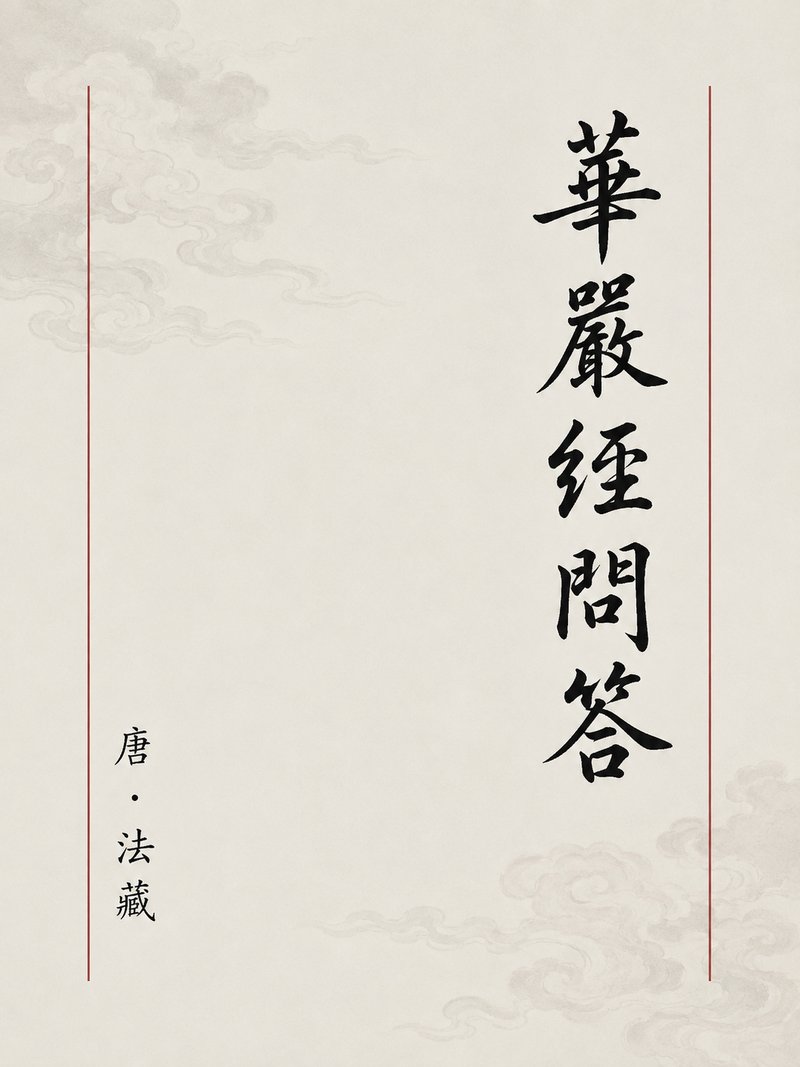 華嚴經問答
唐·法藏